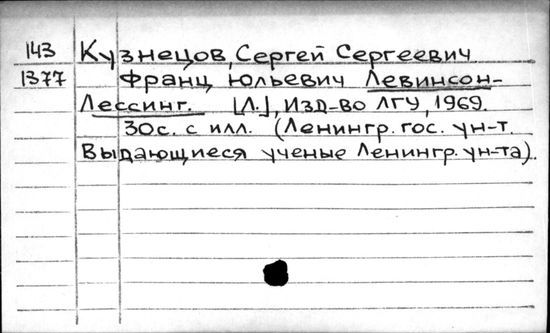 143 Кузнецов, Сергей Сергеевич
1377 Франц Юльевич Левинсон-
Лессинг. [Л.], Изд-во ЛГУ, 1969.
30с. с илл. (Ленингр. гос. ун-т.
Выдающиеся ученые Ленингр. ун-та).